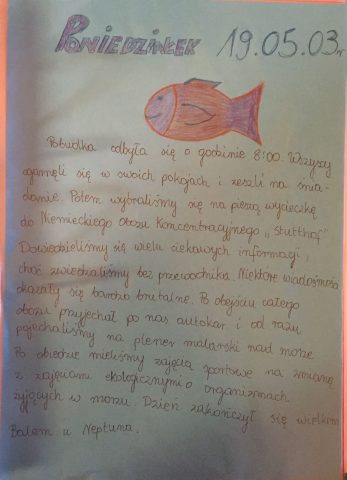 PONIEDZIAŁEK 19.05.03r
Pobudka odbyła się o godzinie 8:00. Wszyscy
ogarnęli się w swoich pokojach i zeszli na śnia-
danie. Potem wybraliśmy się na pieszą wycieczkę
do Niemieckiego obozu Koncentracyjnego „Stutthof"
Dowiedzieliśmy się wielu ciekawych informacji,
choć zwiedzaliśmy bez przewodnika. Niektóre wiadomości
okazały się bardzo brutalne. Po obejściu całego
obozu przyjechał po nas autokar i od razu
pojechaliśmy na plener malarski nad morze
Po obiedzie mieliśmy zajęcia sportowe na zmianę
z zajęciami ekologicznymi o organizmach
żyjących w morzu. Dzień zakończył się wielkim
Balem u Neptuna.